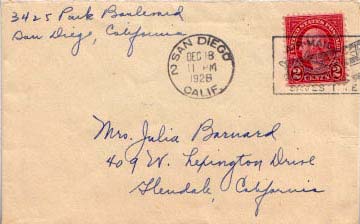 3425 Park Boulevard
San Diego, California
2 SAN DIEGO
DEC 18
11 PM
1928
CALIF.
AIR MAIL
SAVES TIME
UNITED STATES POSTAGE
2 CENTS 2
Mrs. Julia Barnard
409 W. Lexington Drive
Glendale, California